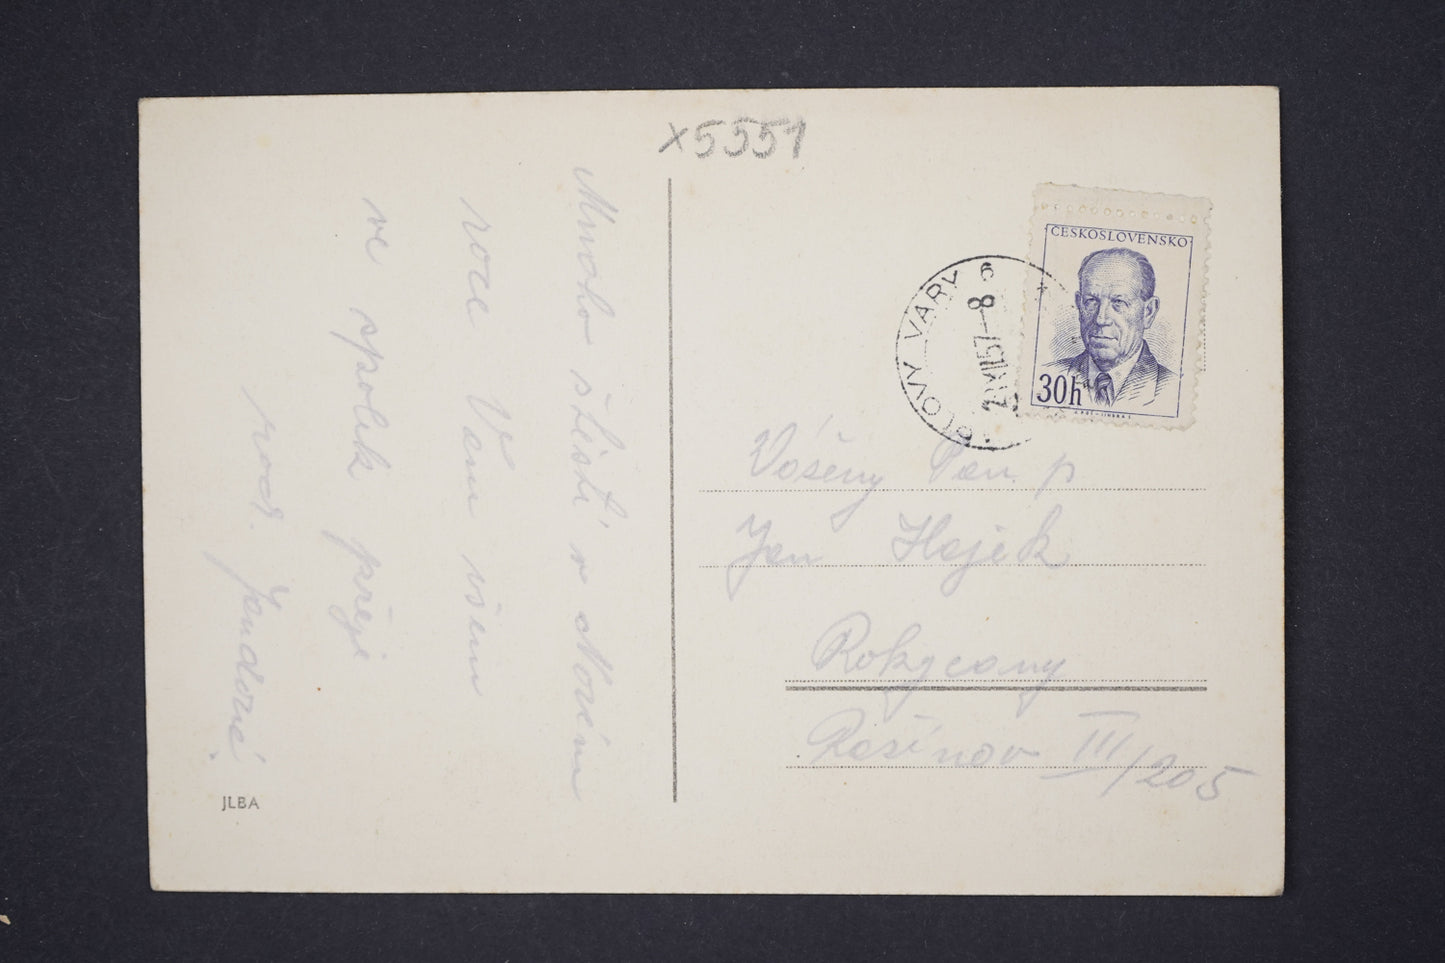 x5551
Mnoho štěstí v Novém
roce Vám všem
ve spolek přeje
rod. Jandové.
JLBA
ČESKOSLOVENSKO
30h
LOVY VARY
6
2 XII 57 - 8
Vášeny Pan p
Jan Hajek
Rokycany
Rašínov III/205